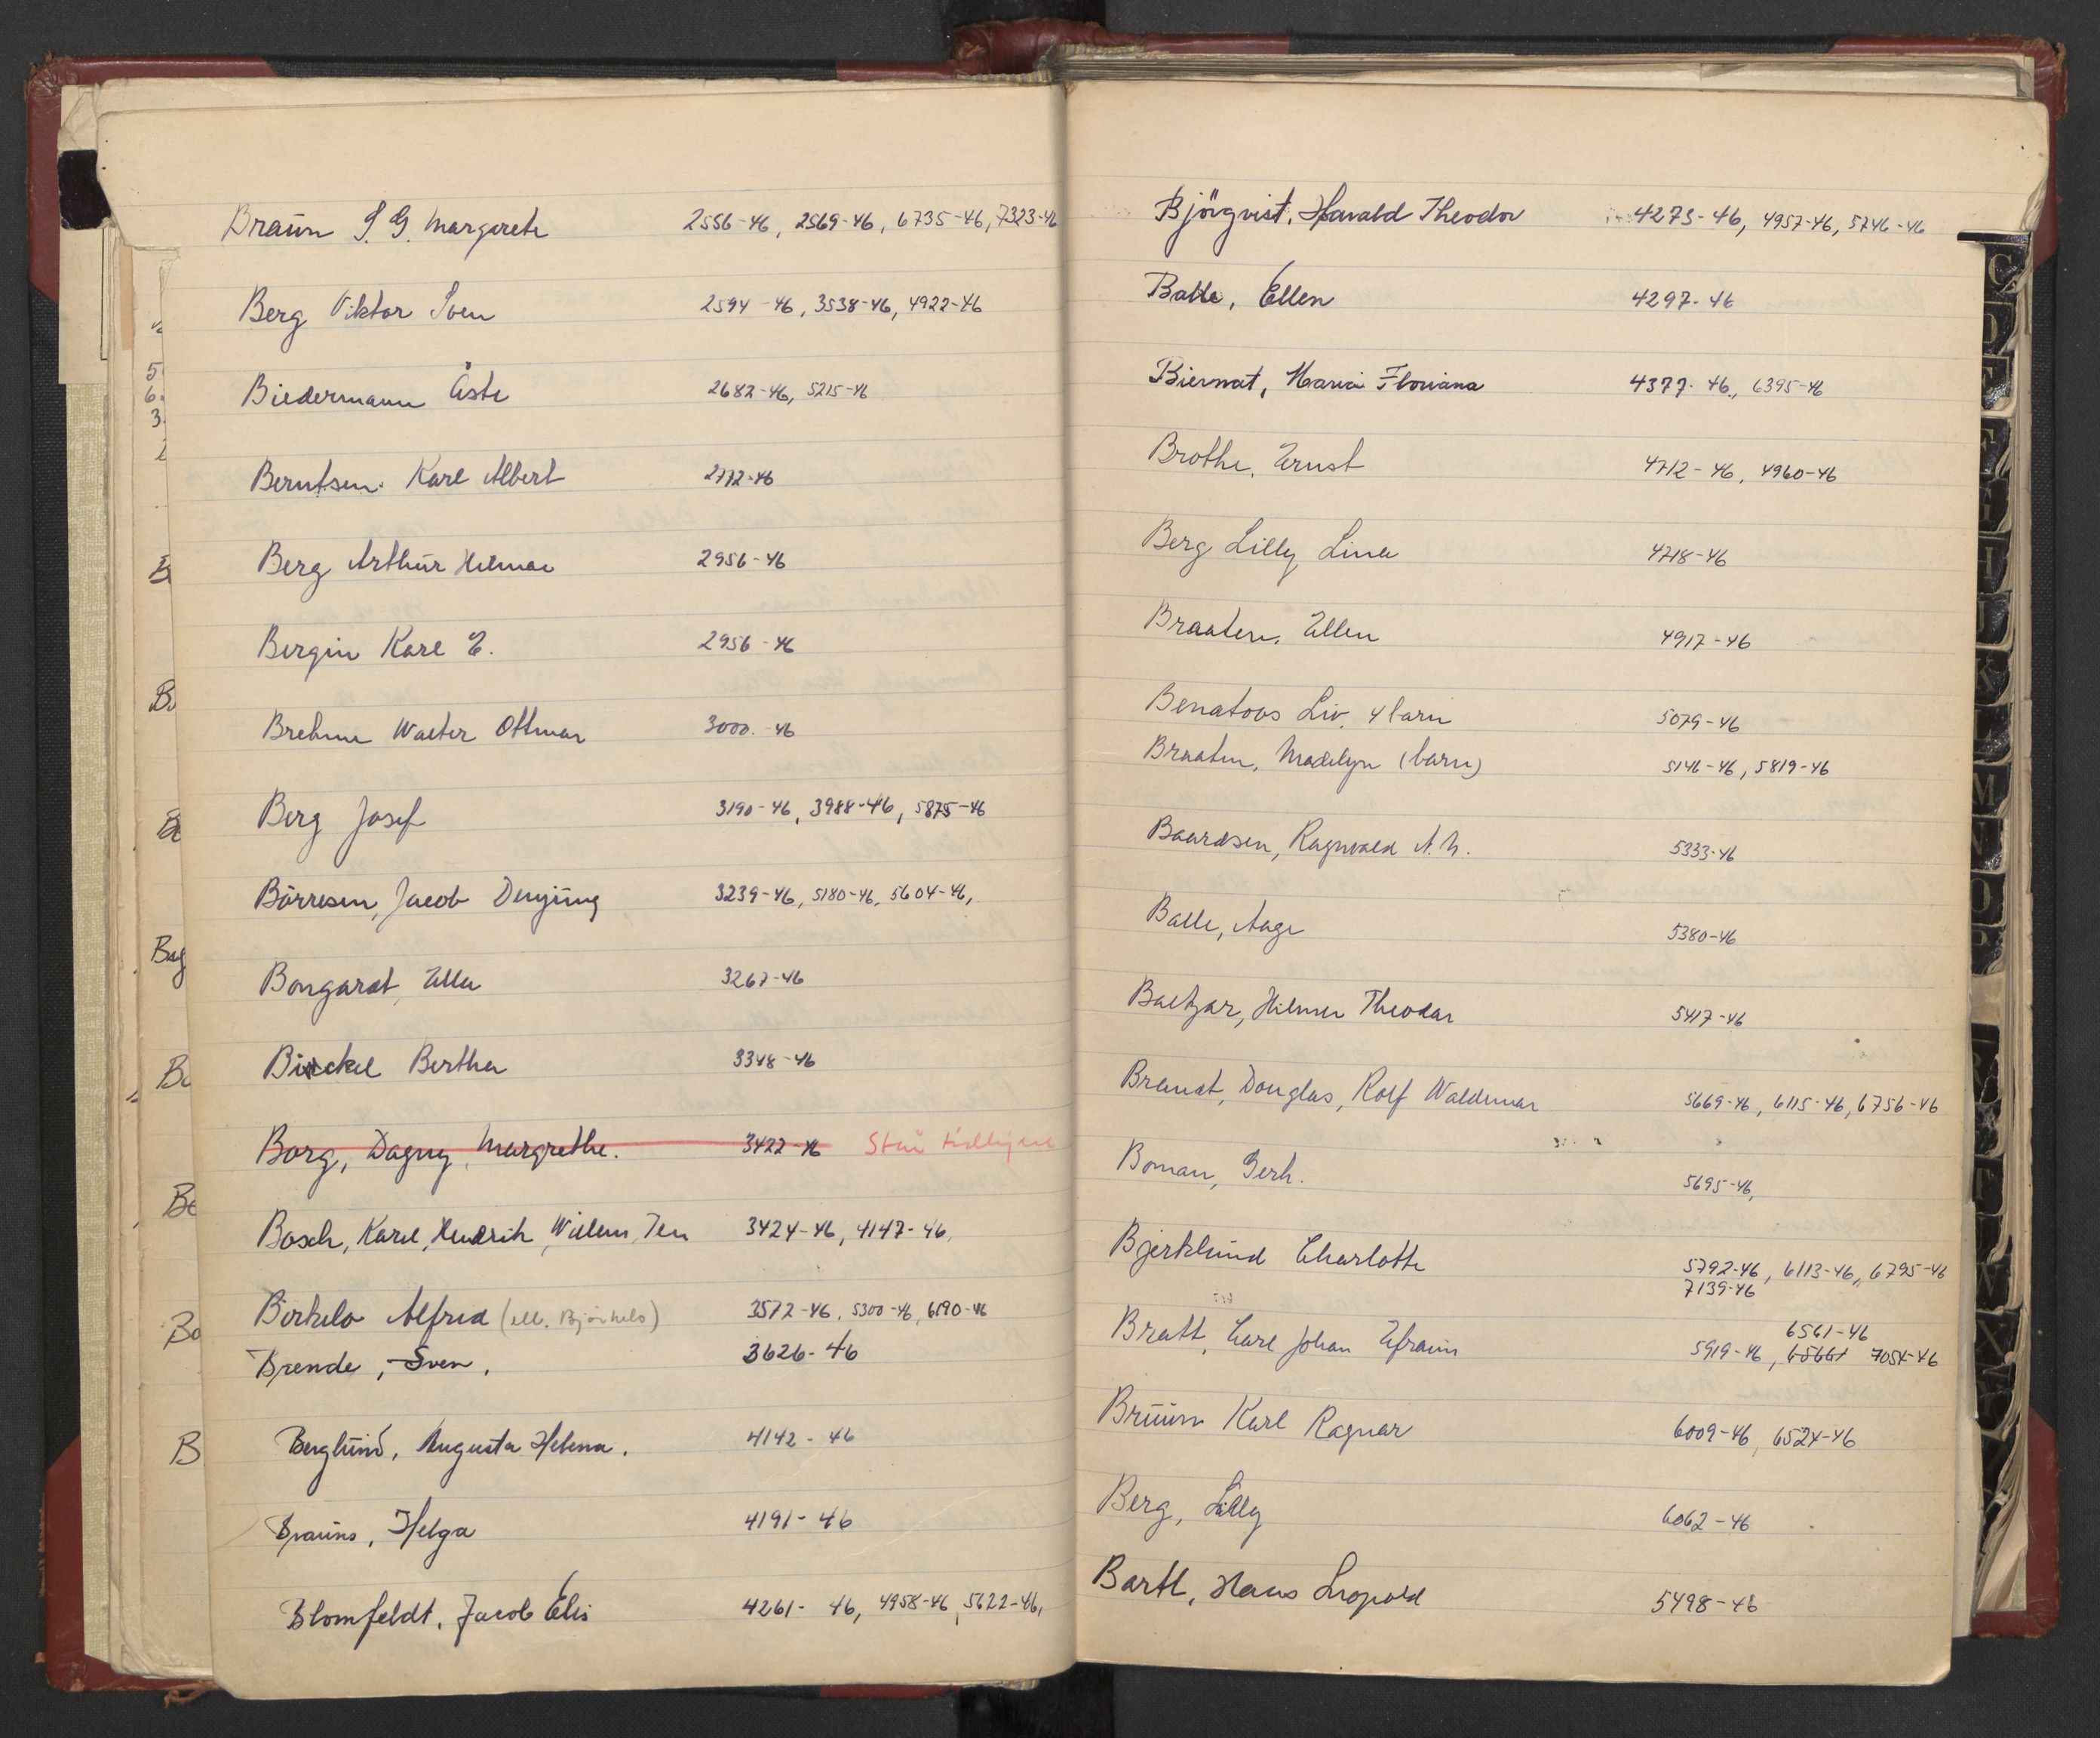 Braun S. G. Margarete 2556-46, 2569-46, 6735-46, 7323-46
Berg Viktor Sven 2594-46, 3538-46, 4922-46
Biedermann Åste 2682-46, 5215-46
Berntsen. Karl Albert 2772-46
Berg Arthur Hilmar 2956-46
Bergin Karl E. 2956-46
Brehme Walter Ottmar 3000-46
Berg Josef 3190-46, 3988-46, 5875-46
Börresen, Jacob 3239-46, 5180-46, 5604-46,
Bongardt, Ella 3267-46
Bertha 3348-46
Borg, Dagny, Margrethe. 3422-46 Står
Bosch, Karel, Hendrik, Willem, Ten 3424-46, 4147-46,
Birkelo Alfred (ell. Bjørkelo) 3572-46, 5300-46, 6190-46
Brende, Sven, 3626-46
Berglund, Augusta Helena. 4142-46
Brauns, Helga 4191-46
Blomfeldt, Jacob Elis 4261-46, 4958-46, 5622-46,
Björqvist, Harald Theodor 4275-46, 4957-46, 5746-46
Balle, Ellen 4297-46
Biernat, Maria Floriana 4377-46, 6395-46
Brothe, Ernst 4712-46, 4960-46
Berg Lilly Lina 4718-46
Braaten, Ellen 4917-46
Benatoos Liv. 4 barn 5079-46
Braaten, Madelyn (barn) 5146-46, 5819-46
Baardsen, Ragnvald A. h. 5333-46
Balle, Aage 5380-46
Baltzar, Hilmer Theodor 5417-46
Brandt, Douglas, Rolf Waldemar 5669-46, 6115-46, 6756-46
Boman, Gerh. 5695-46,
Bjerklund Charlotte 5792-46, 6113-46, 6795-46
7139-46
6561-46
Bratt, Carl Johan Efraim 5919-46, 7054-46
Bruun Karl Ragnar 6009-46, 6524-46
Berg, Lilly 6062-46
Bartl, Hans Leopold 5498-46